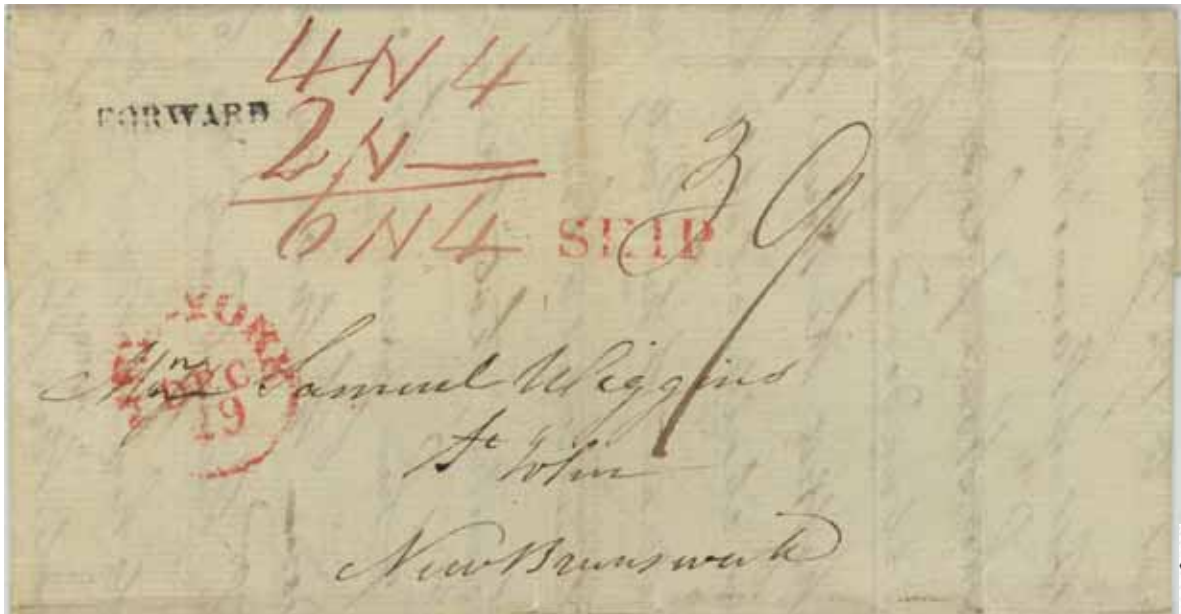 4N4
FORWARD
2N—
6N4
SHIP
39
NEW YORK
DEC
19
Mr Samuel Wiggins
St John
New Brunswick